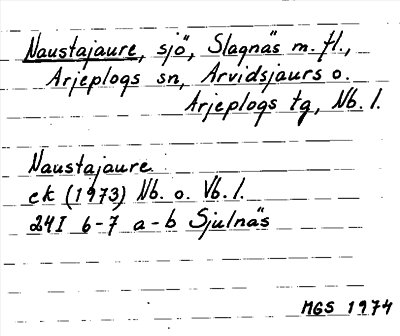 Naustajaure, sjö, Slagnäs m. fl.,
Arjeplogs sn, Arvidsjaurs o.
Arjeplogs tg, Nb. l.
Naustajaure
ek (1973) Nb. o. Vb. l.
24I 6-7 a-b Sjulnäs
MGS 1974